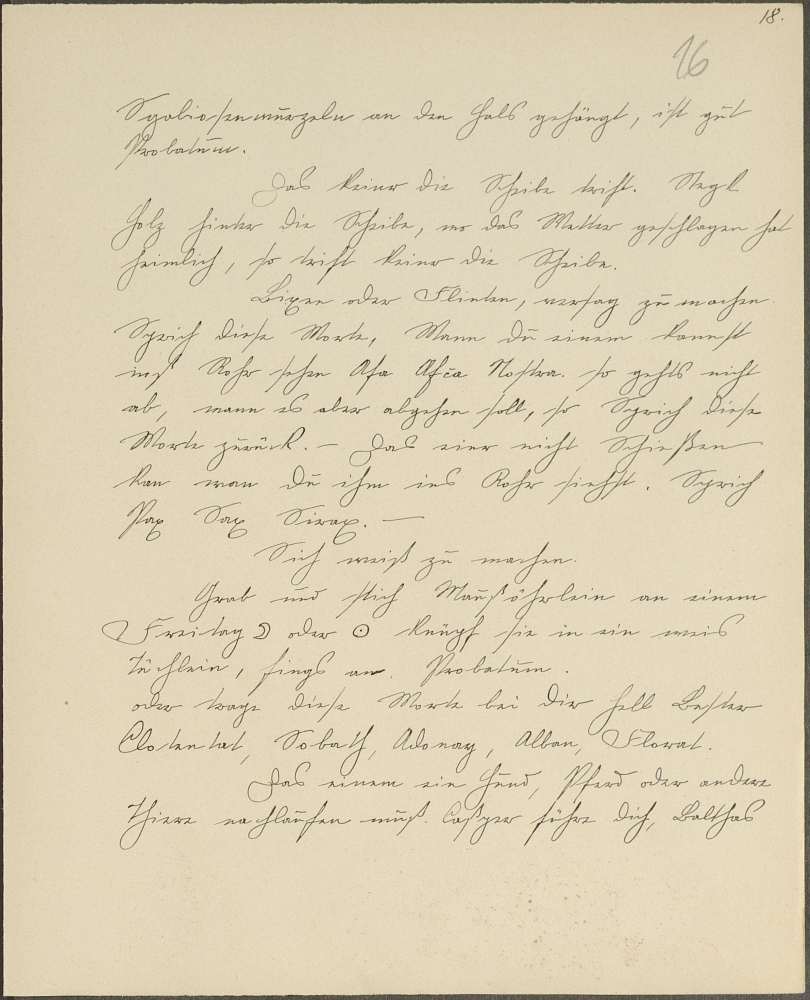 18.
16
Scabiosenwurzeln an den Hals gehängt, ist gut
Probatum.
Das keiner die Scheibe trift. Steck
Holz hinter die Scheibe, wo das Wetter geschlagen hat
heimlich, so trift keiner die Scheibe.
Bixen oder Flinten, versag zu machen.
Sprich diese Worte, Wann du einem kannst
ins Rohr sehen Afa Afca Nostra. so gehts nicht
ab, wann es aber abgehen soll, so Sprich diese
Worte zurück. — Das einer nicht Schießen
kan wan du ihm ins Rohr siehst. Sprich
Pax Sax Sirax. —
Sich weiß zu machen.
Grab und stich Maußöhrlein an einem
Freitag ☽ oder ☉ knüpf sie in ein weis
Tüchlein, hengs an. Probatum.
oder trage diese Worte bei Dir Hell Bester
Clotentat, Sobath, Adonay, Alban, Florat.
Das einem ein Hund, Pferd oder andere
Thiere nachlaufen muß. Caßper führe dich, Balthas